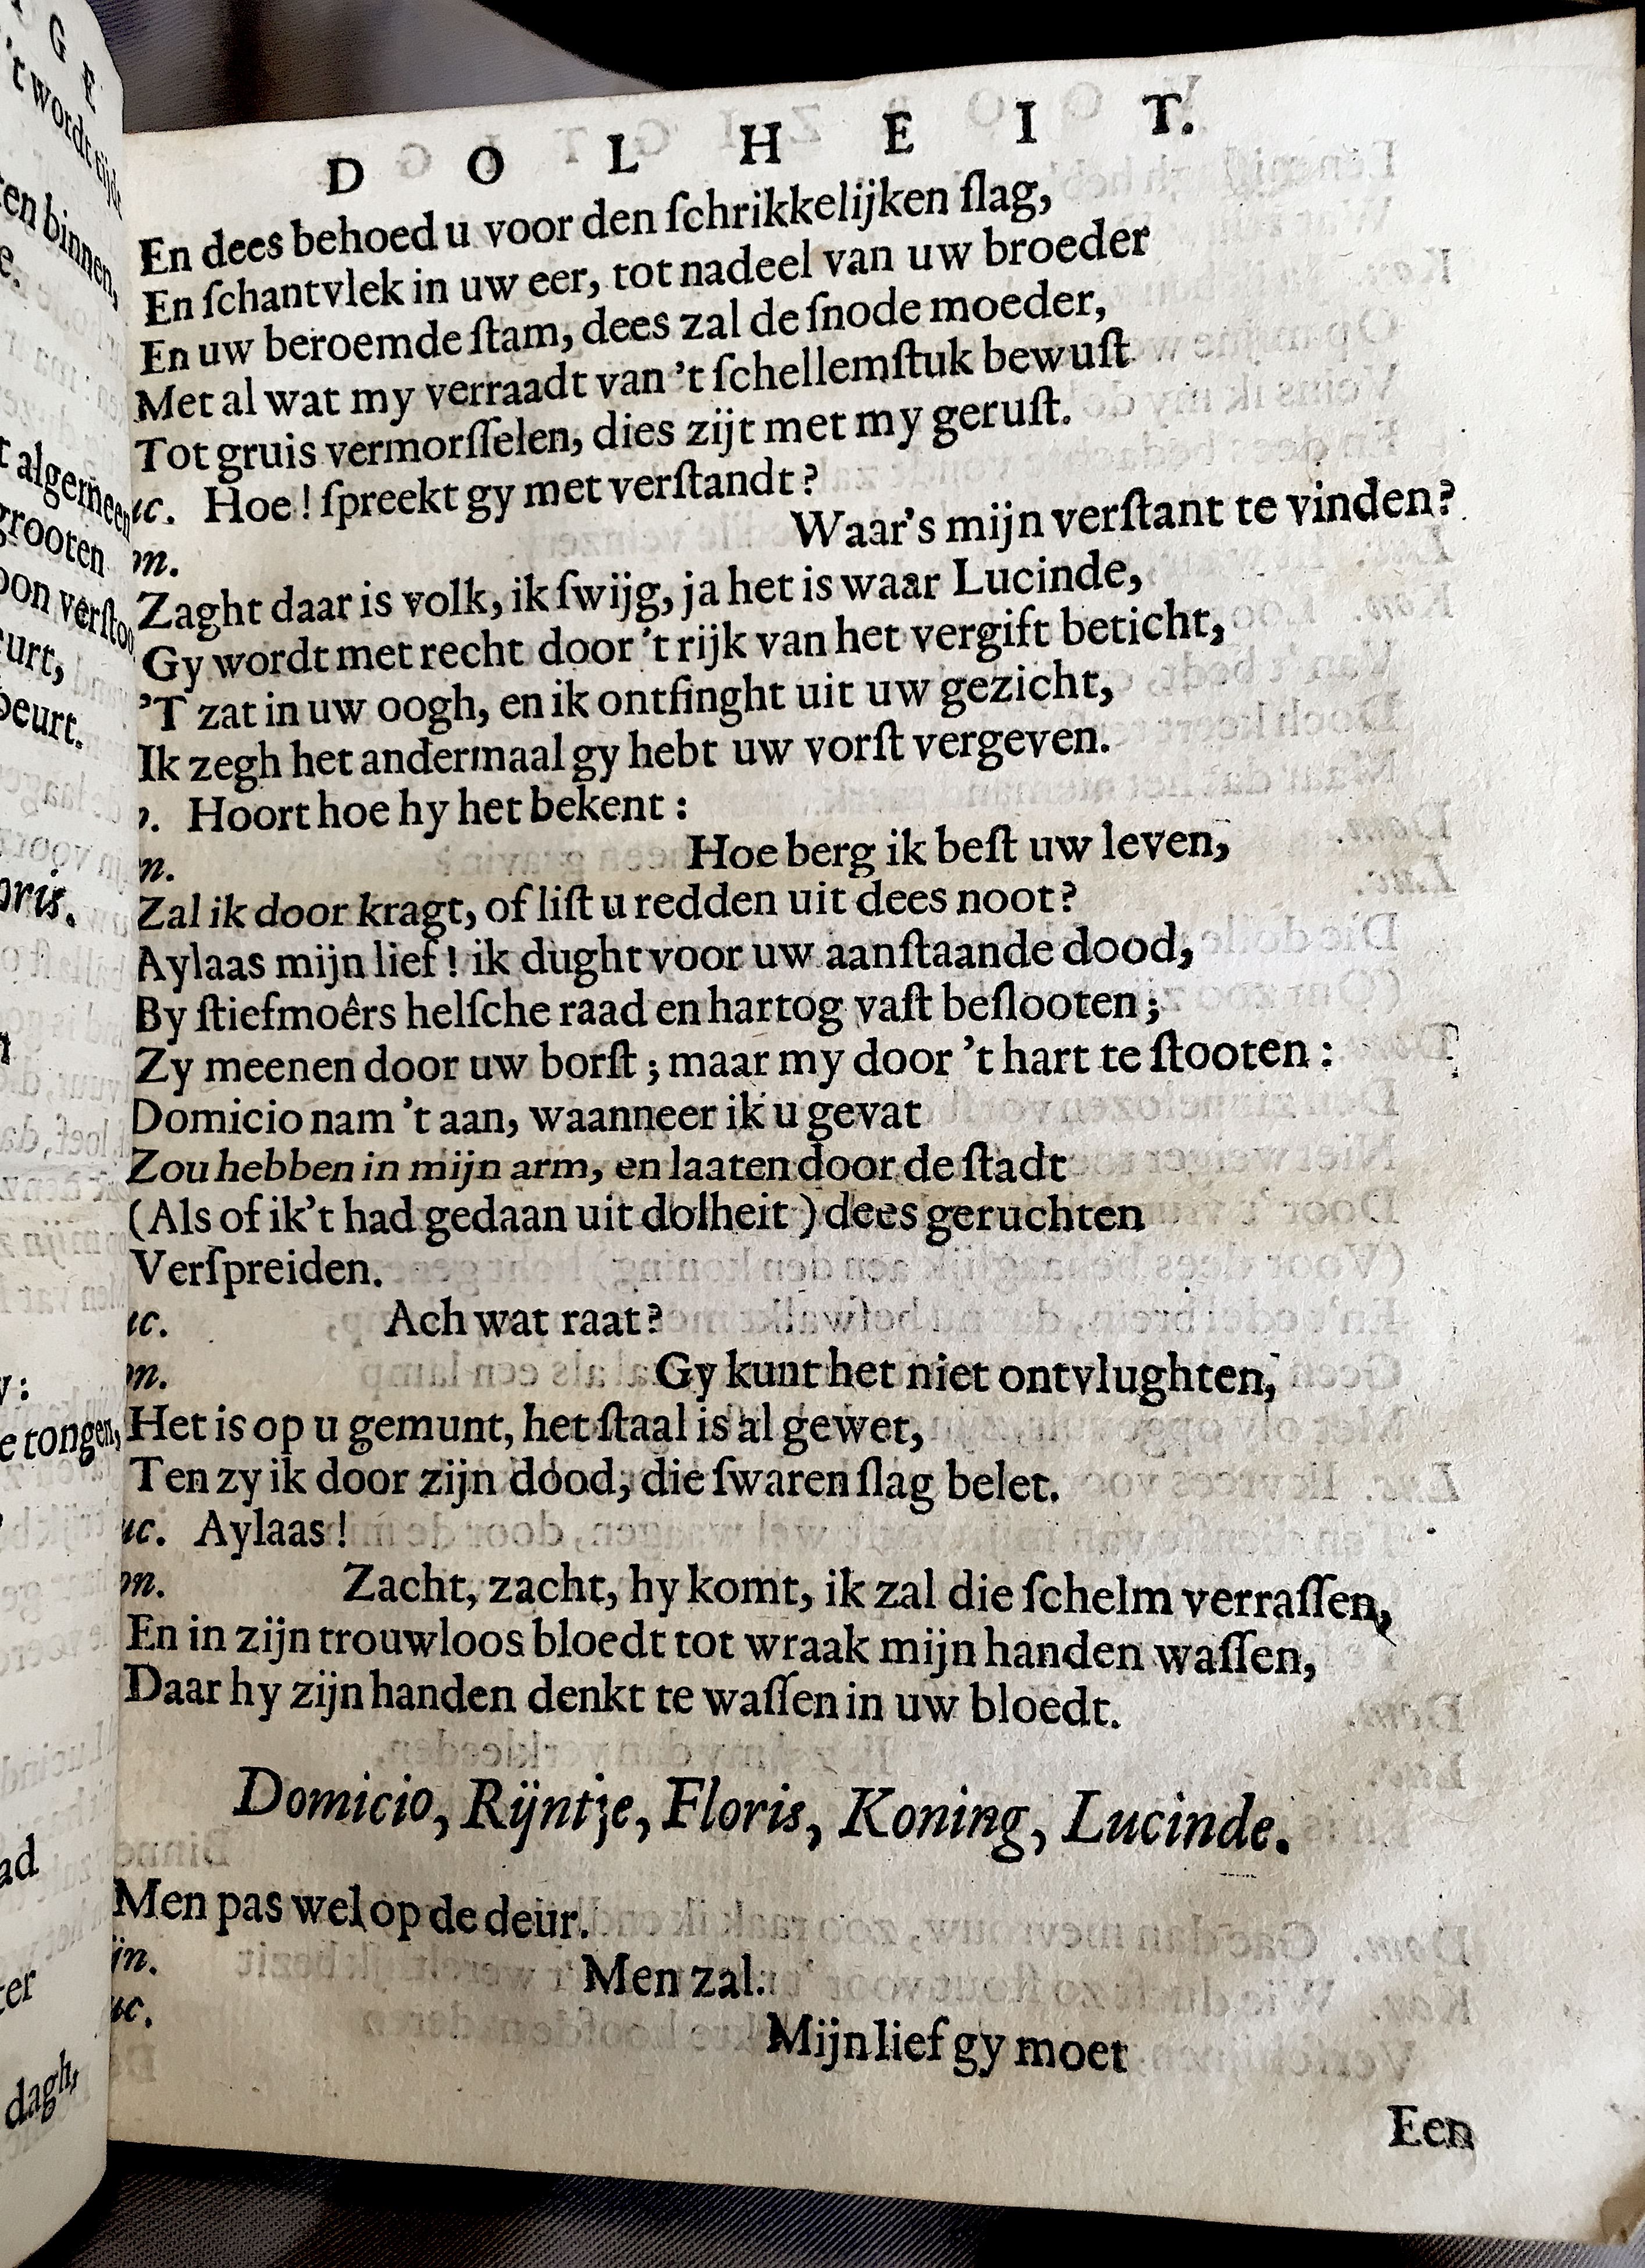 D O L H E I T.
En dees behoed u voor den ſchrikkelijken ſlag,
En ſchantvlek in uw eer, tot nadeel van uw broeder
En uw beroemde ſtam, dees zal de ſnode moeder,
Met al wat my verraadt van 't ſchellemſtuk bewuſt
Tot gruis vermorſſelen, dies zijt met my geruſt.
uc. Hoe! ſpreekt gy met verſtandt?
on. Waar's mijn verſtant te vinden?
Zaght daar is volk, ik ſwijg, ja het is waar Lucinde,
Gy wordt met recht door 't rijk van het vergift beticht,
'T zat in uw oogh, en ik ontfinght uit uw gezicht,
Ik zegh het andermaal gy hebt uw vorſt vergeven.
. Hoort hoe hy het bekent:
n. Hoe berg ik beſt uw leven,
Zal ik door kragt, of liſt u redden uit dees noot?
Aylaas mijn lief! ik dught voor uw aanſtaande dood,
By ſtiefmoêrs helſche raad en hartog vaſt beſlooten;
Zy meenen door uw borſt; maar my door 't hart te ſtooten:
Domicio nam 't aan, waanneer ik u gevat
Zou hebben in mijn arm, en laaten door de ſtadt
(Als of ik't had gedaan uit dolheit) dees geruchten
Verſpreiden.
uc. Ach wat raat?
on. Gy kunt het niet ontvlughten,
Het is op u gemunt, het ſtaal is al gewet,
Ten zy ik door zijn dood, die ſwaren ſlag belet.
uc. Aylaas!
on. Zacht, zacht, hy komt, ik zal die ſchelm verraſſen,
En in zijn trouwloos bloedt tot wraak mijn handen waſſen,
Daar hy zijn handen denkt te waſſen in uw bloedt.
Domicio, Rijntje, Floris, Koning, Lucinde.
Men pas wel op de deur.
ijn. Men zal.
uc. Mijn lief gy moet
Een